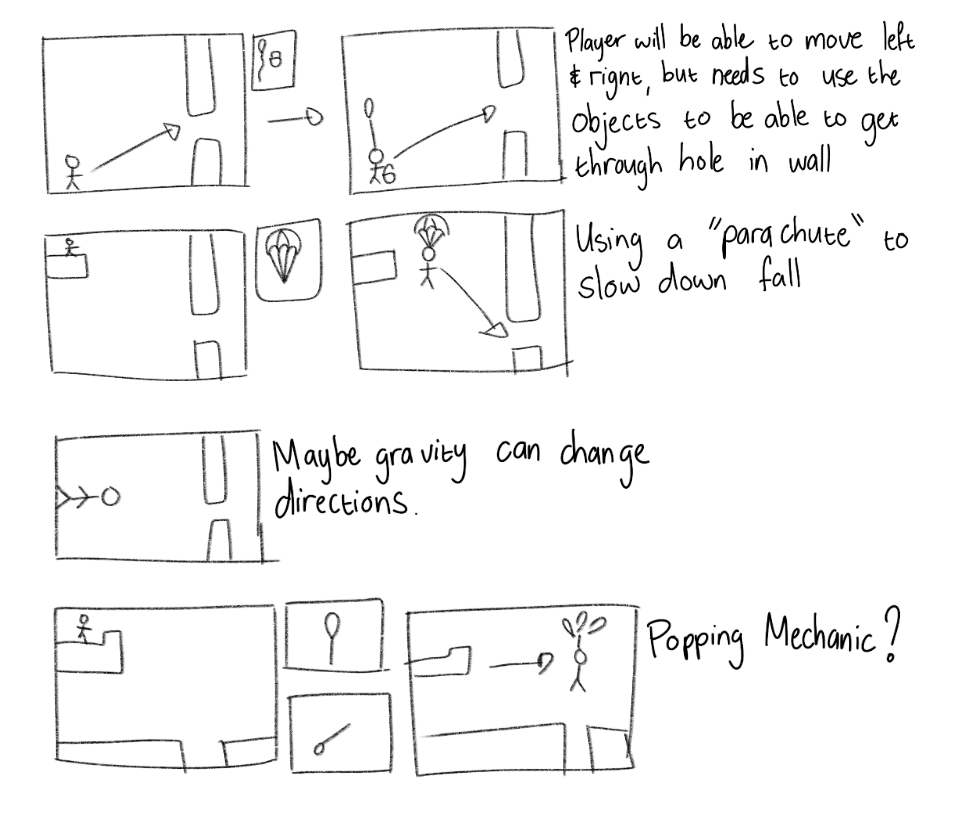 Player will be able to move left
& right, but needs to use the
objects to be able to get
through hole in wall
Using a "parachute" to
slow down fall
Maybe gravity can change
directions.
Popping Mechanic?